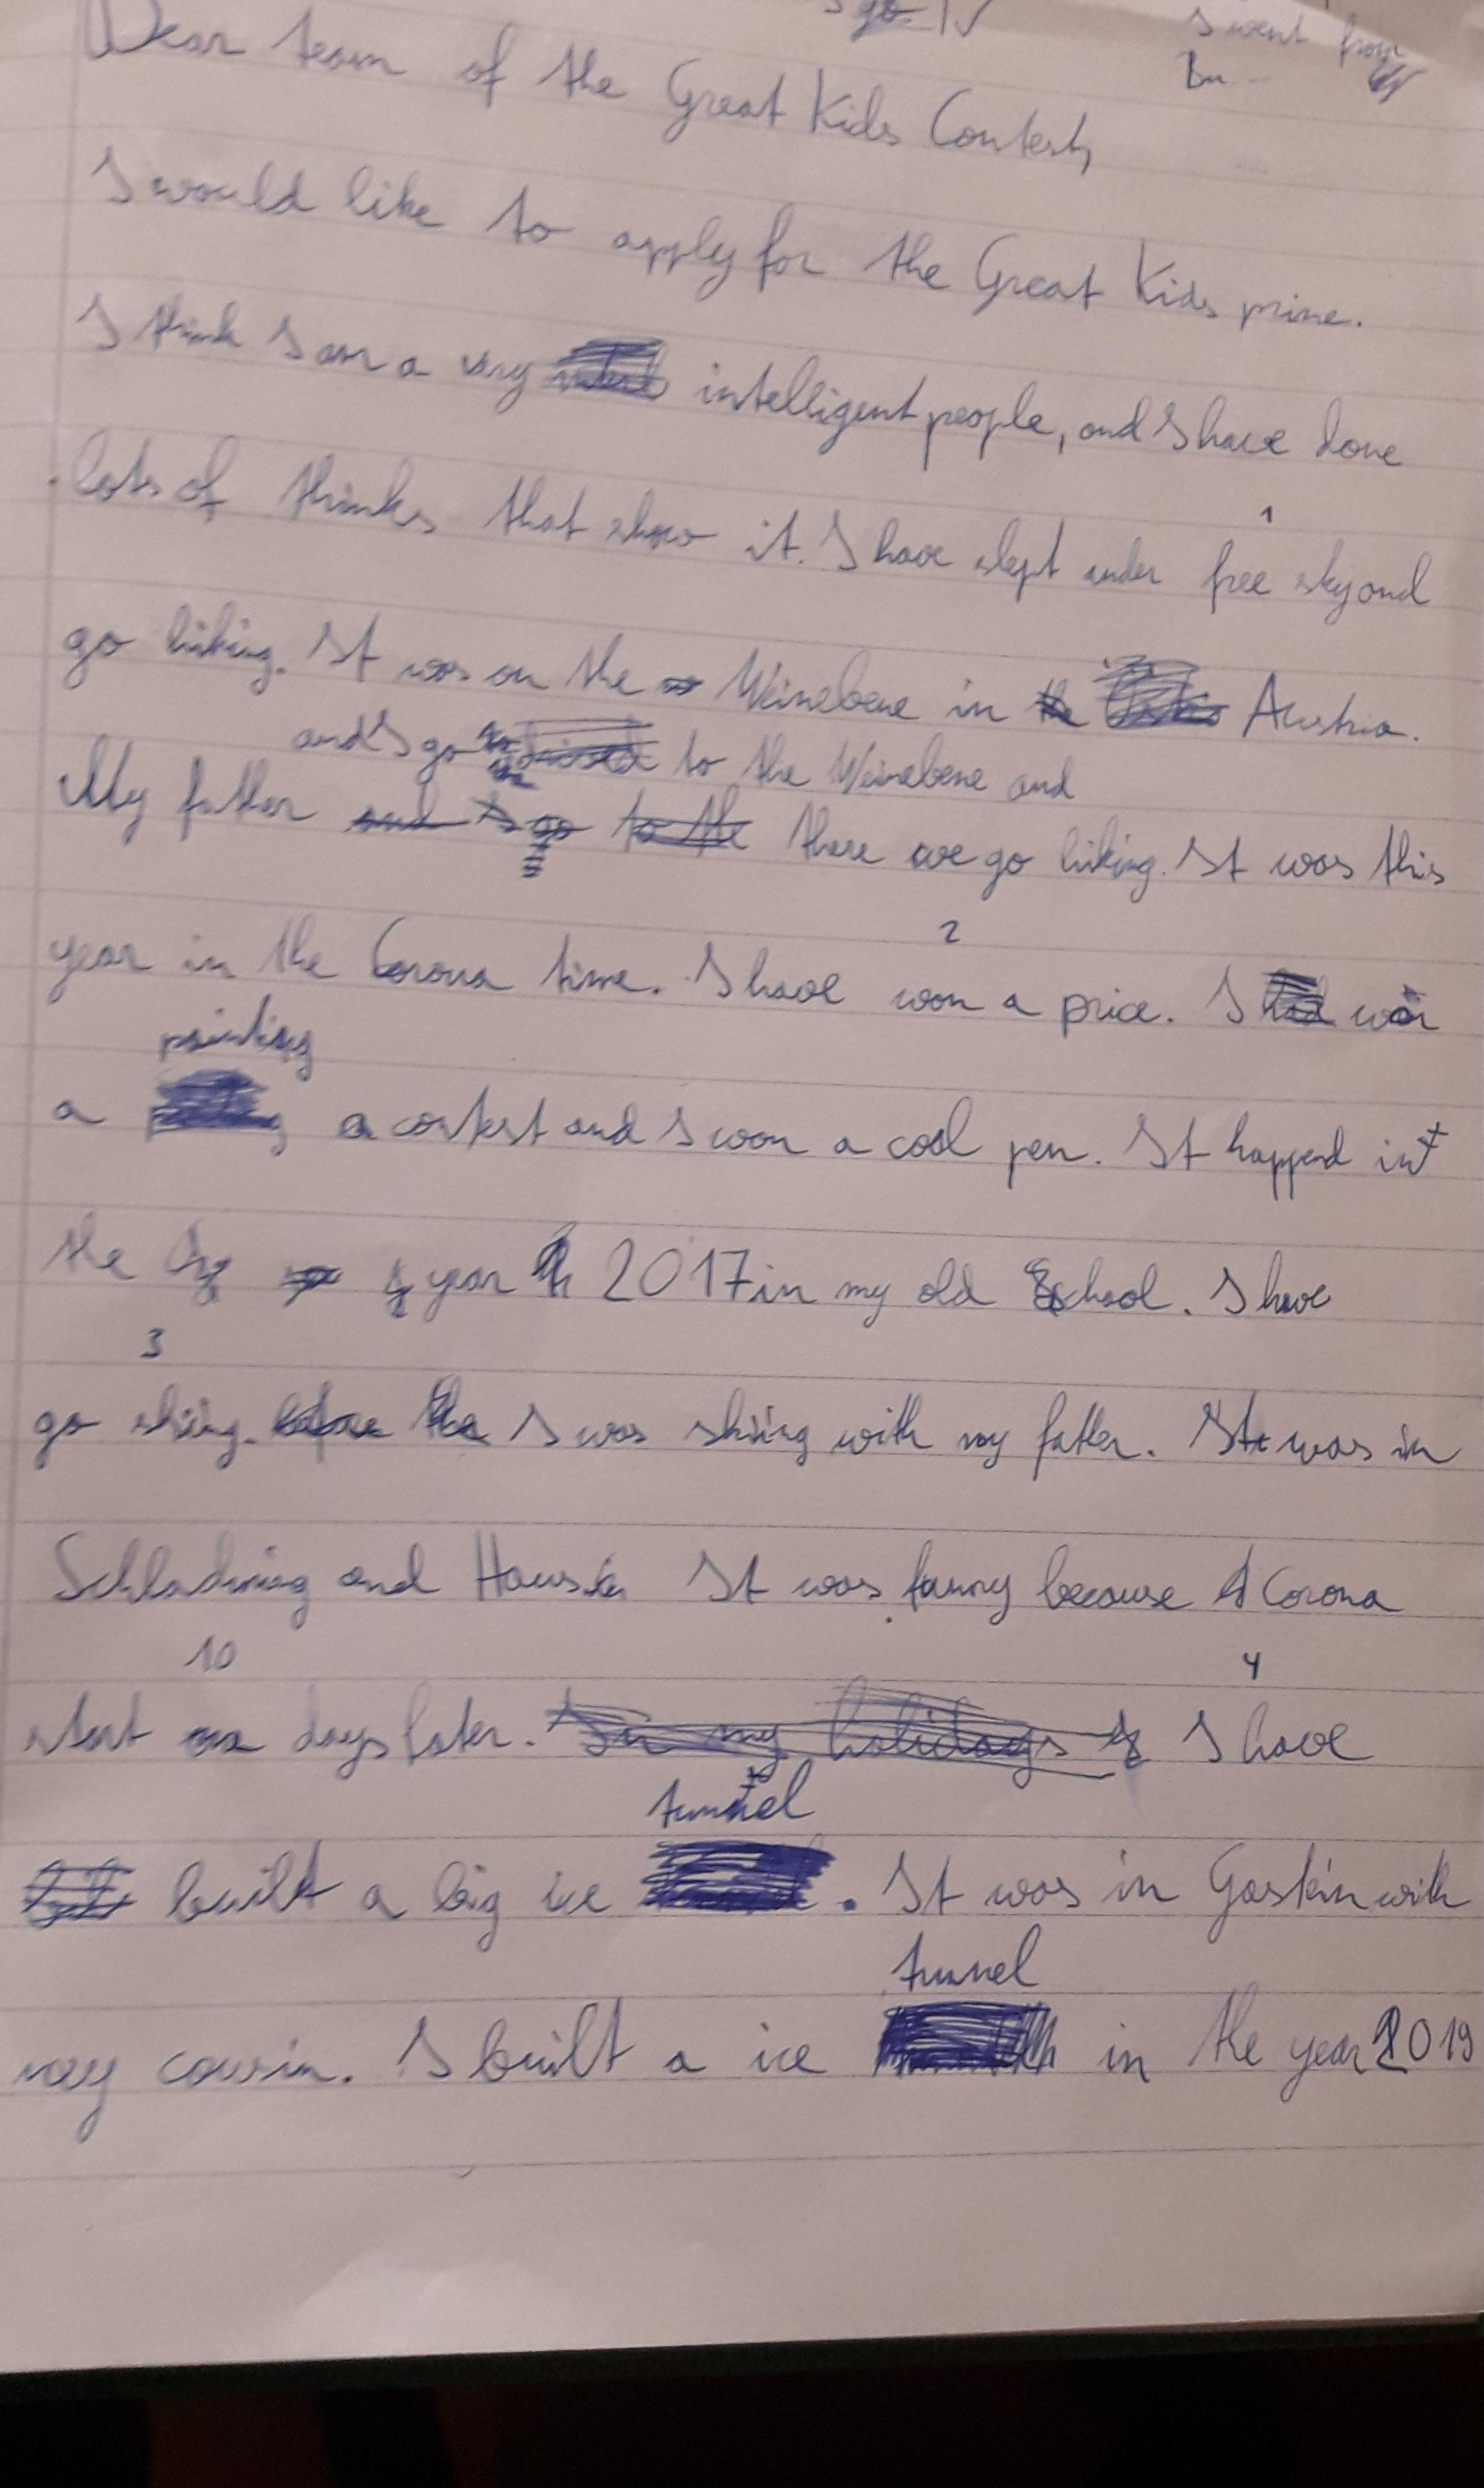 I went from
In...
Dear team of the Great Kids Contest,
I would like to apply for the Great Kids prine.
I think I am a very intelligent people, and I have done
1
lots of thinks that show it. I have slept under free sky and
go hiking. It was on the Weinebene in the Austria.
and I go to the Weinebene and
My father and I go to the there we go hiking. It was this
2
year in the Corona time. I have won a price. I won
painting
a a contest and I won a cool pen. It happend in
the year 2017 in my old School. I have
3
go skiing. before the I was skiing with my father. It was in
Schladming and Haus It was funny because Corona
10 4
start days later. In my holidays I have
tunnel
built a big ice . It was in Gastein with
tunnel
my cousin. I built a ice in the year 2019